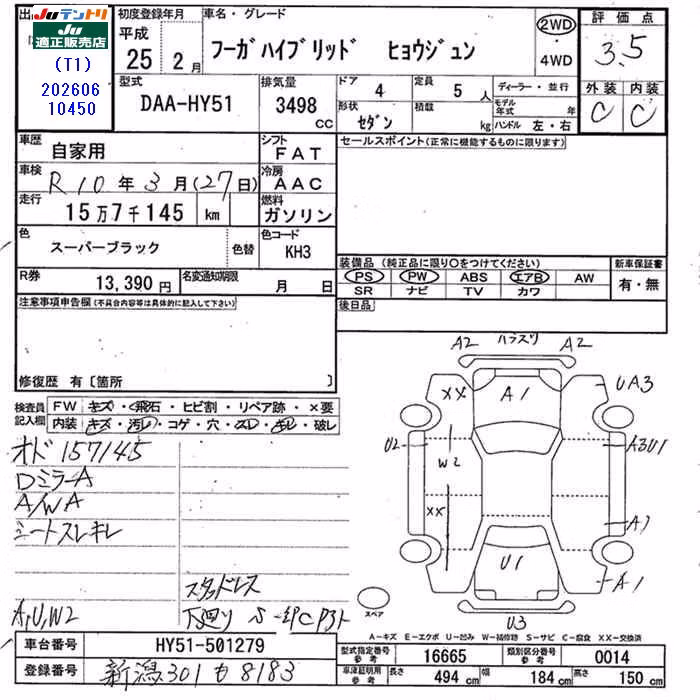 出
JUテントリ
JU適正販売店
(T1)
202606
10450
初度登録年月
平成
25 2月
車名・グレード
フーガハイブリッド ヒョウジュン
2WD
・
4WD
評価点
3.5
外装 内装
C C
型式
DAA-HY51
排気量
3498 cc
ドア 4
定員 5人
形状 セダン
積載 kg
ディーラー・並行
モデル年式 年
ハンドル 左・右
車歴
自家用
シフト
FAT
セールスポイント(正常に機能するものに限ります)
車検
R10年3月(27日)
冷房
AAC
走行
15万7千145 km
燃料
ガソリン
色
スーパーブラック
色替
色コード
KH3
装備品(純正品に限り○をつけてください)
PS PW ABS エアB AW
SR ナビ TV カワ
新車保証書
有・無
後日品
R券
13,390円
名変通知期限
月 日
注意事項申告欄(不具合内容等は具体的に記入して下さい)
修復歴 有〔箇所 〕
検査員記入欄
FW キズ・飛石・ヒビ割・リペア跡・×要
内装 キズ・汚レ・コゲ・穴・スレ・キレ・破レ
オド 157145
Dミラー A
A/W A
シートスレキレ
スタッドレス
A,U,W2
A2 ハラスリ A2
XX A1 UA3
U2 W2 A3U1
XX A1
U1 A1
U3
スペア
A-キズ E-エクボ U-凹み W-補修跡 S-サビ C-腐食 XX-交換済
車台番号 HY51-501279
登録番号 新潟301も8183
型式指定番号 参考 16665
類別区分番号 参考 0014
車庫証明用 参考 長さ 494cm 幅 184cm 高さ 150cm